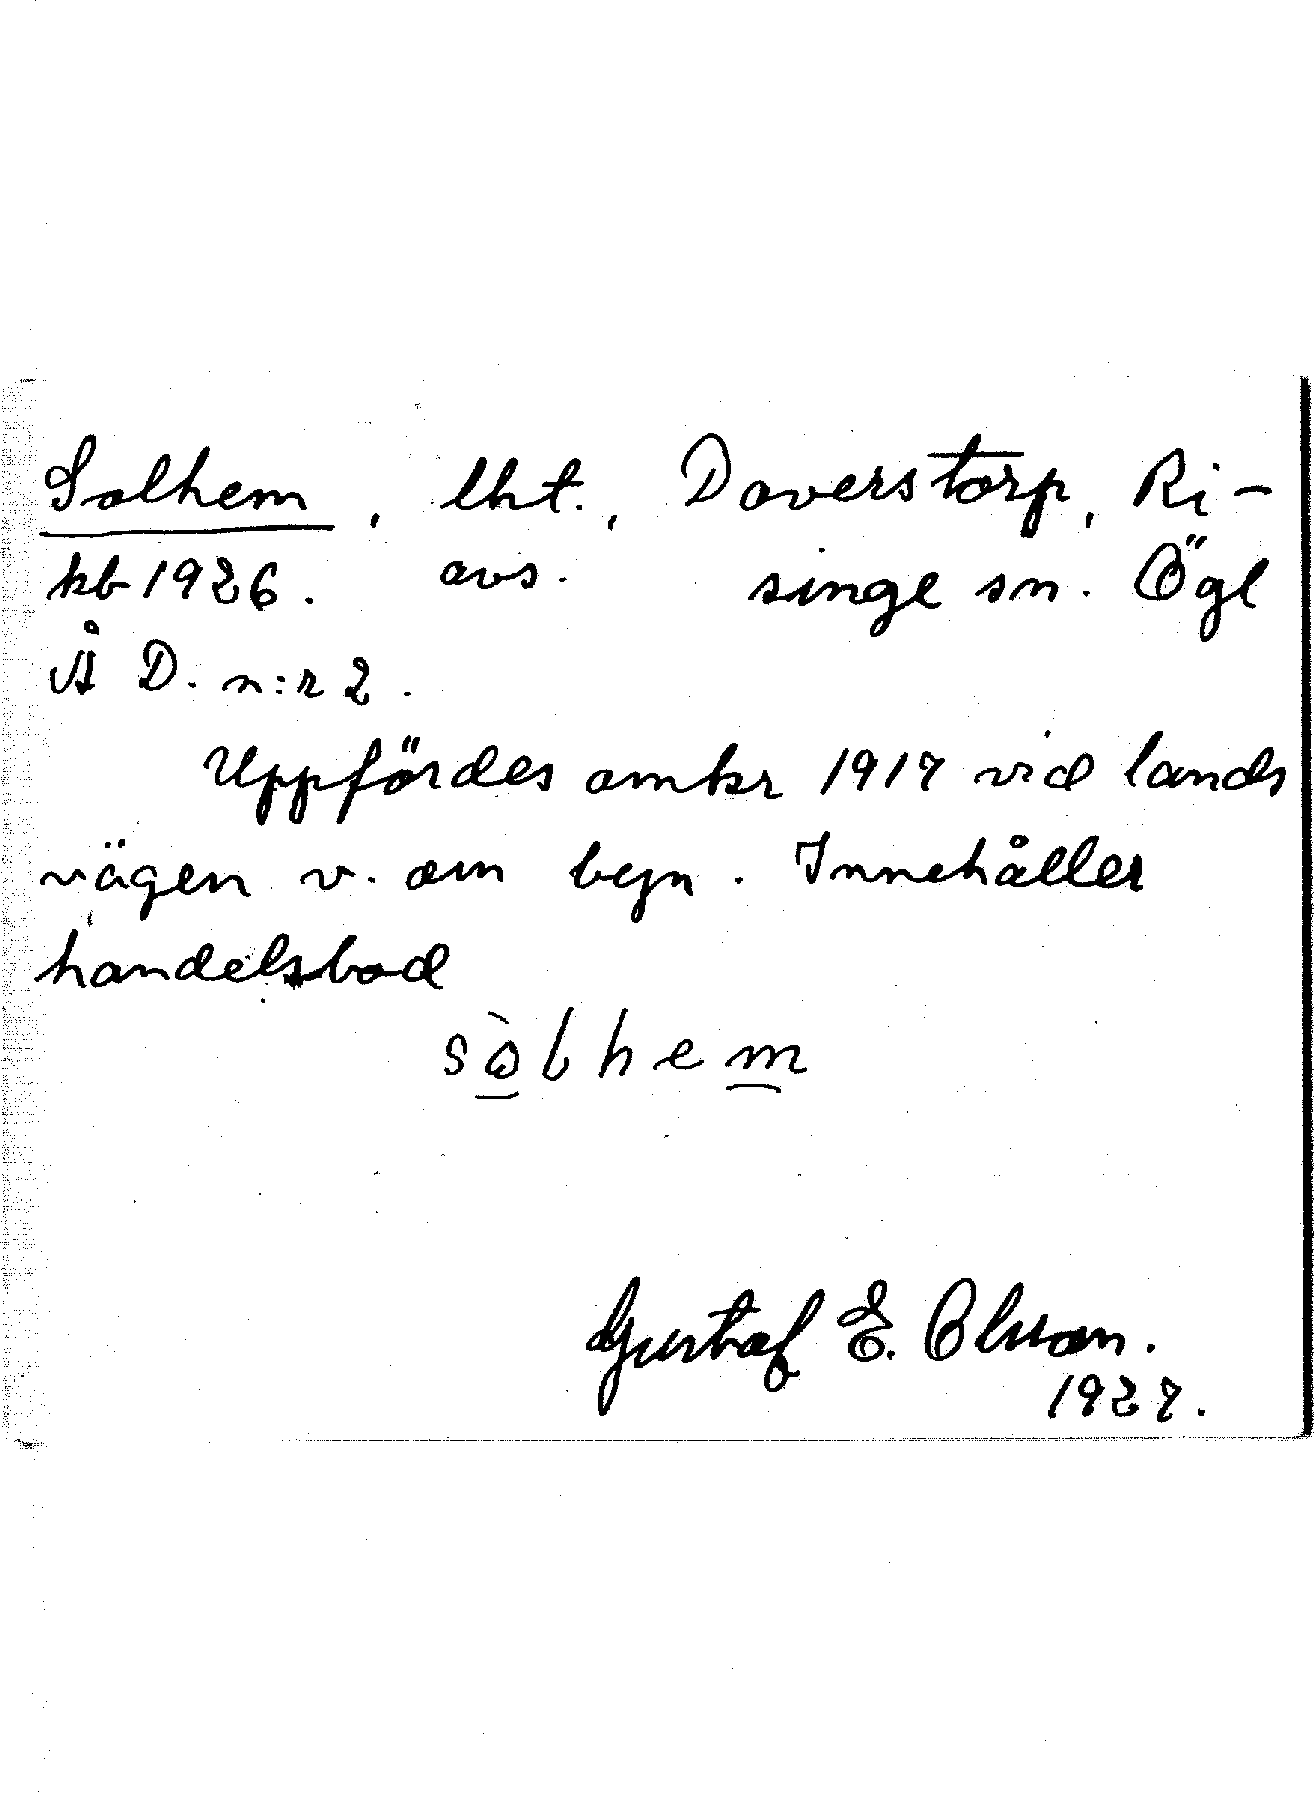 Solhem, lht., Daverstorp, Ri-
kb 1926. avs. singe sn. Ögl
Å D. n:r 2.
Uppfördes omkr 1917 vid lands
vägen v. om byn. Innehåller
handelsbod
sòlhem
Gustaf E. Olsson.
1927.